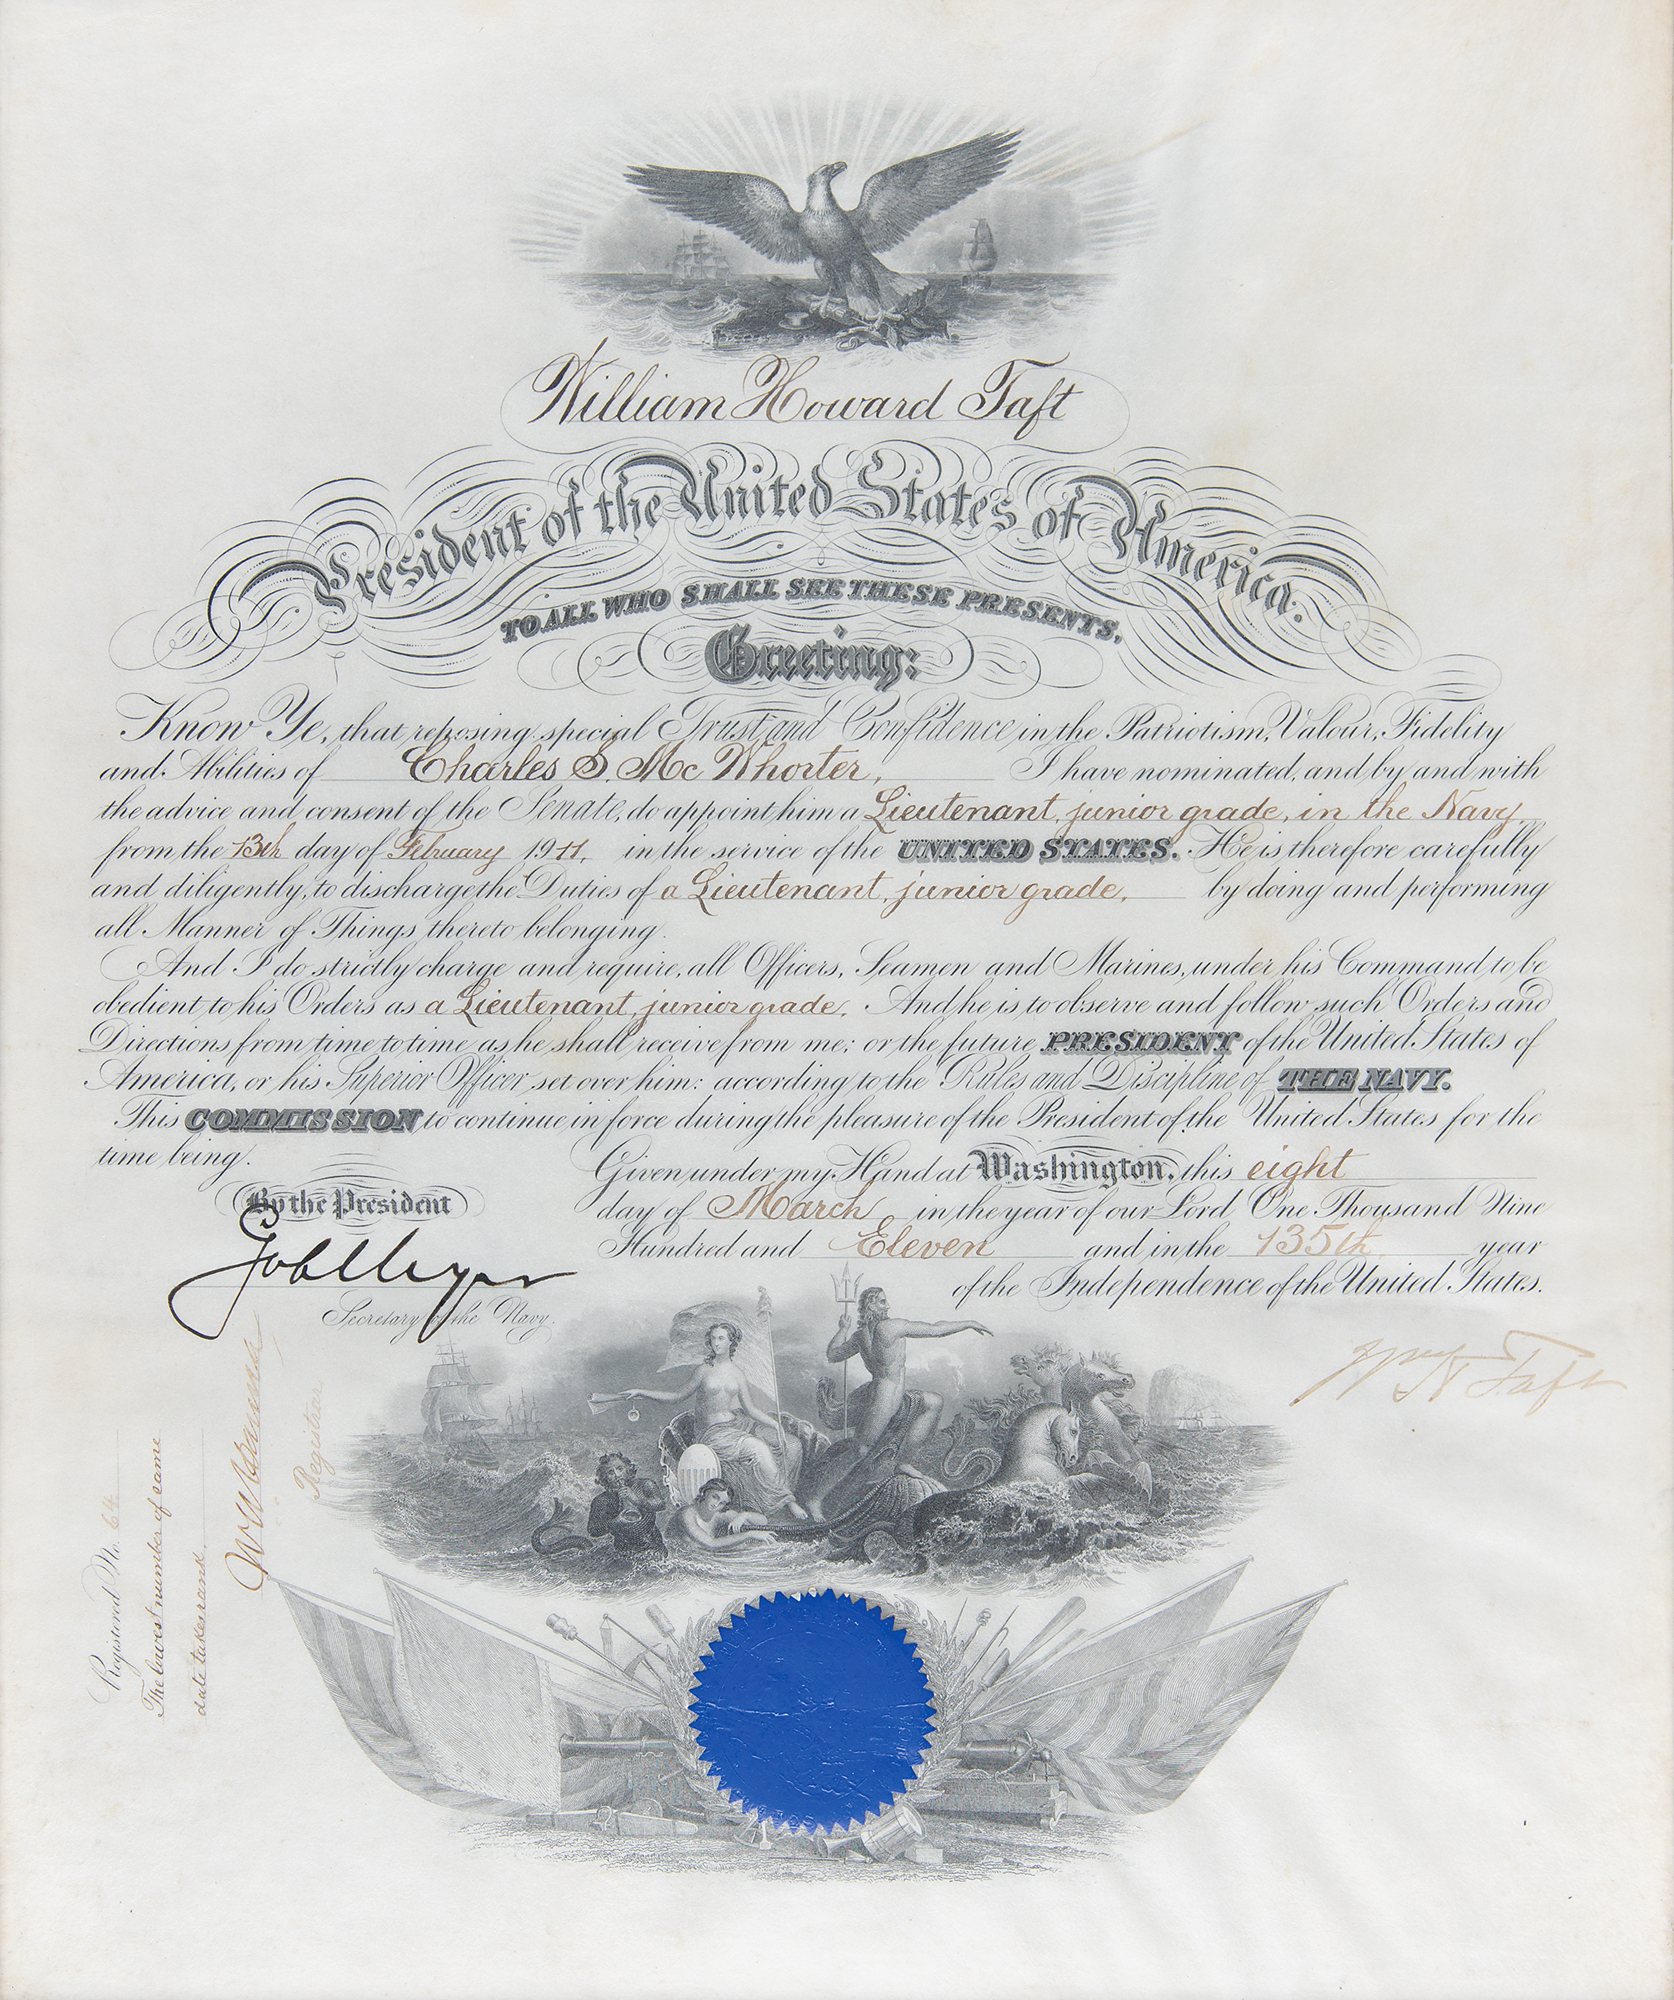 William Howard Taft
President of the United States of America.
TO ALL WHO SHALL SEE THESE PRESENTS,
Greeting:
Know Ye, that reposing special Trust and Confidence in the Patriotism, Valour, Fidelity
and Abilities of Charles S. Mc Whorter, I have nominated, and by and with
the advice and consent of the Senate, do appoint him a Lieutenant, junior grade, in the Navy
from the 13th day of February 1911, in the service of the UNITED STATES. He is therefore carefully
and diligently, to discharge the Duties of a Lieutenant, junior grade, by doing and performing
all Manner of Things thereto belonging.
And I do strictly charge and require, all Officers, Seamen and Marines, under his Command to be
obedient to his Orders as a Lieutenant, junior grade. And he is to observe and follow such Orders and
Directions from time to time as he shall receive from me; or the future PRESIDENT of the United States of
America, or his Superior Officer set over him: according to the Rules and Discipline of THE NAVY.
This COMMISSION to continue in force during the pleasure of the President of the United States for the
time being.
Given under my Hand at Washington, this eight
day of March in the year of our Lord One Thousand Nine
Hundred and Eleven and in the 135th year
of the Independence of the United States.
By the President
Secretary of the Navy.
Wm H Taft
Registered No. 64
The lowest number of same
date takes rank
Registrar